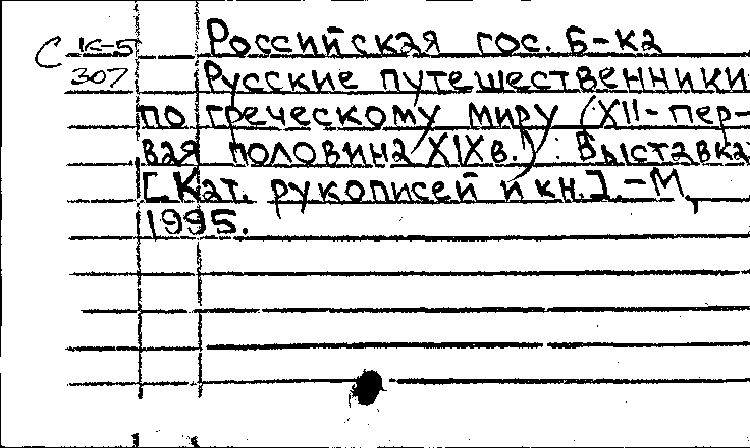 С 1К-5 Российская гос. б-ка
307 Русские путешественники
по греческому миру (XII-пер-
вая половина XIX в.) : Выставка
[Кат. рукописей и кн.].-М,
1995.